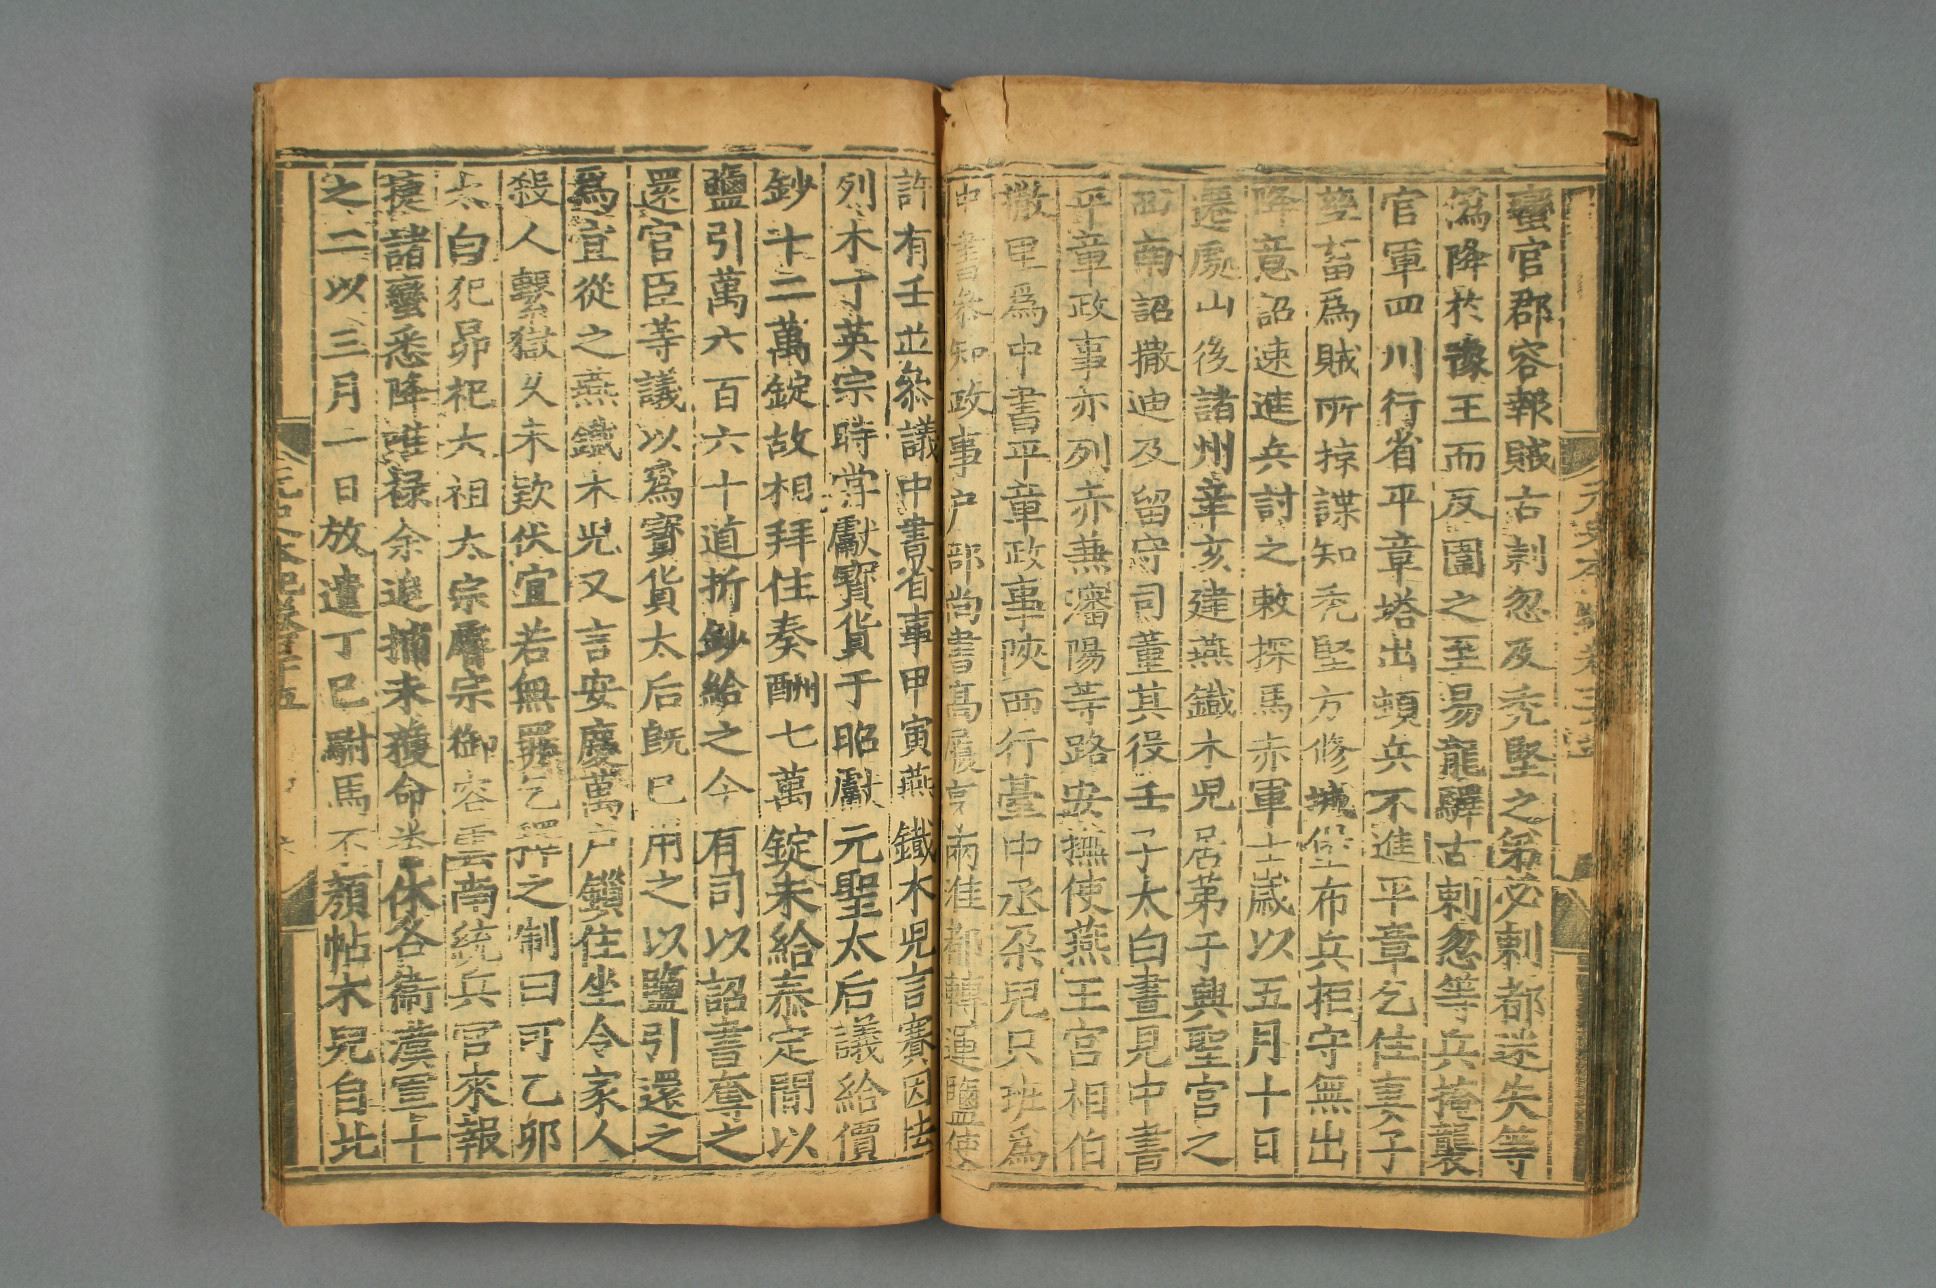 蠻官郡容報賊古剌忽及禿堅之弟必剌都迷失等
僞降於豫王而反圍之至易龍驛古剌忽等兵掩襲
官軍四川行省平章塔出頓兵不進平章乞住妻子
孳畜爲賊所掠諜知禿堅方修城堡布兵拒守無出
降意詔速進兵討之敕探馬赤軍士歲以五月十日
遷處山後諸州辛亥建燕鐵木兒居第于興聖宮之
西南詔撒迪及留守司董其役壬子太白晝見中書
平章政事亦列赤兼瀋陽等路安撫使燕王宮相伯
撒里爲中書平章政事陝西行臺中丞朶兒只班爲
中書參知政事户部尚書高履亨兩淮都轉運鹽使
許有壬並參議中書省事甲寅燕鐵木兒言賽因怯
列木丁英宗時嘗獻寶貨于昭獻元聖太后議給價
鈔十二萬錠故相拜住奏酬七萬錠未給泰定間以
鹽引萬六百六十道折鈔給之今有司以詔書奪之
還官臣等議以爲寶貨太后旣已用之以鹽引還之
爲宜從之燕鐵木兒又言安慶萬户鎖住坐令家人
殺人繫獄久未欵伏宜若無罪乞釋之制曰可乙卯
太白犯昴祀太祖太宗睿宗御容雲南統兵官來報
捷諸蠻悉降唯禄余追捕未獲命孛 休各衞漢軍十
之二以三月一日放遣丁巳駙馬不顏帖木兒自北
元史本紀卷三十五
元史本紀卷三十五